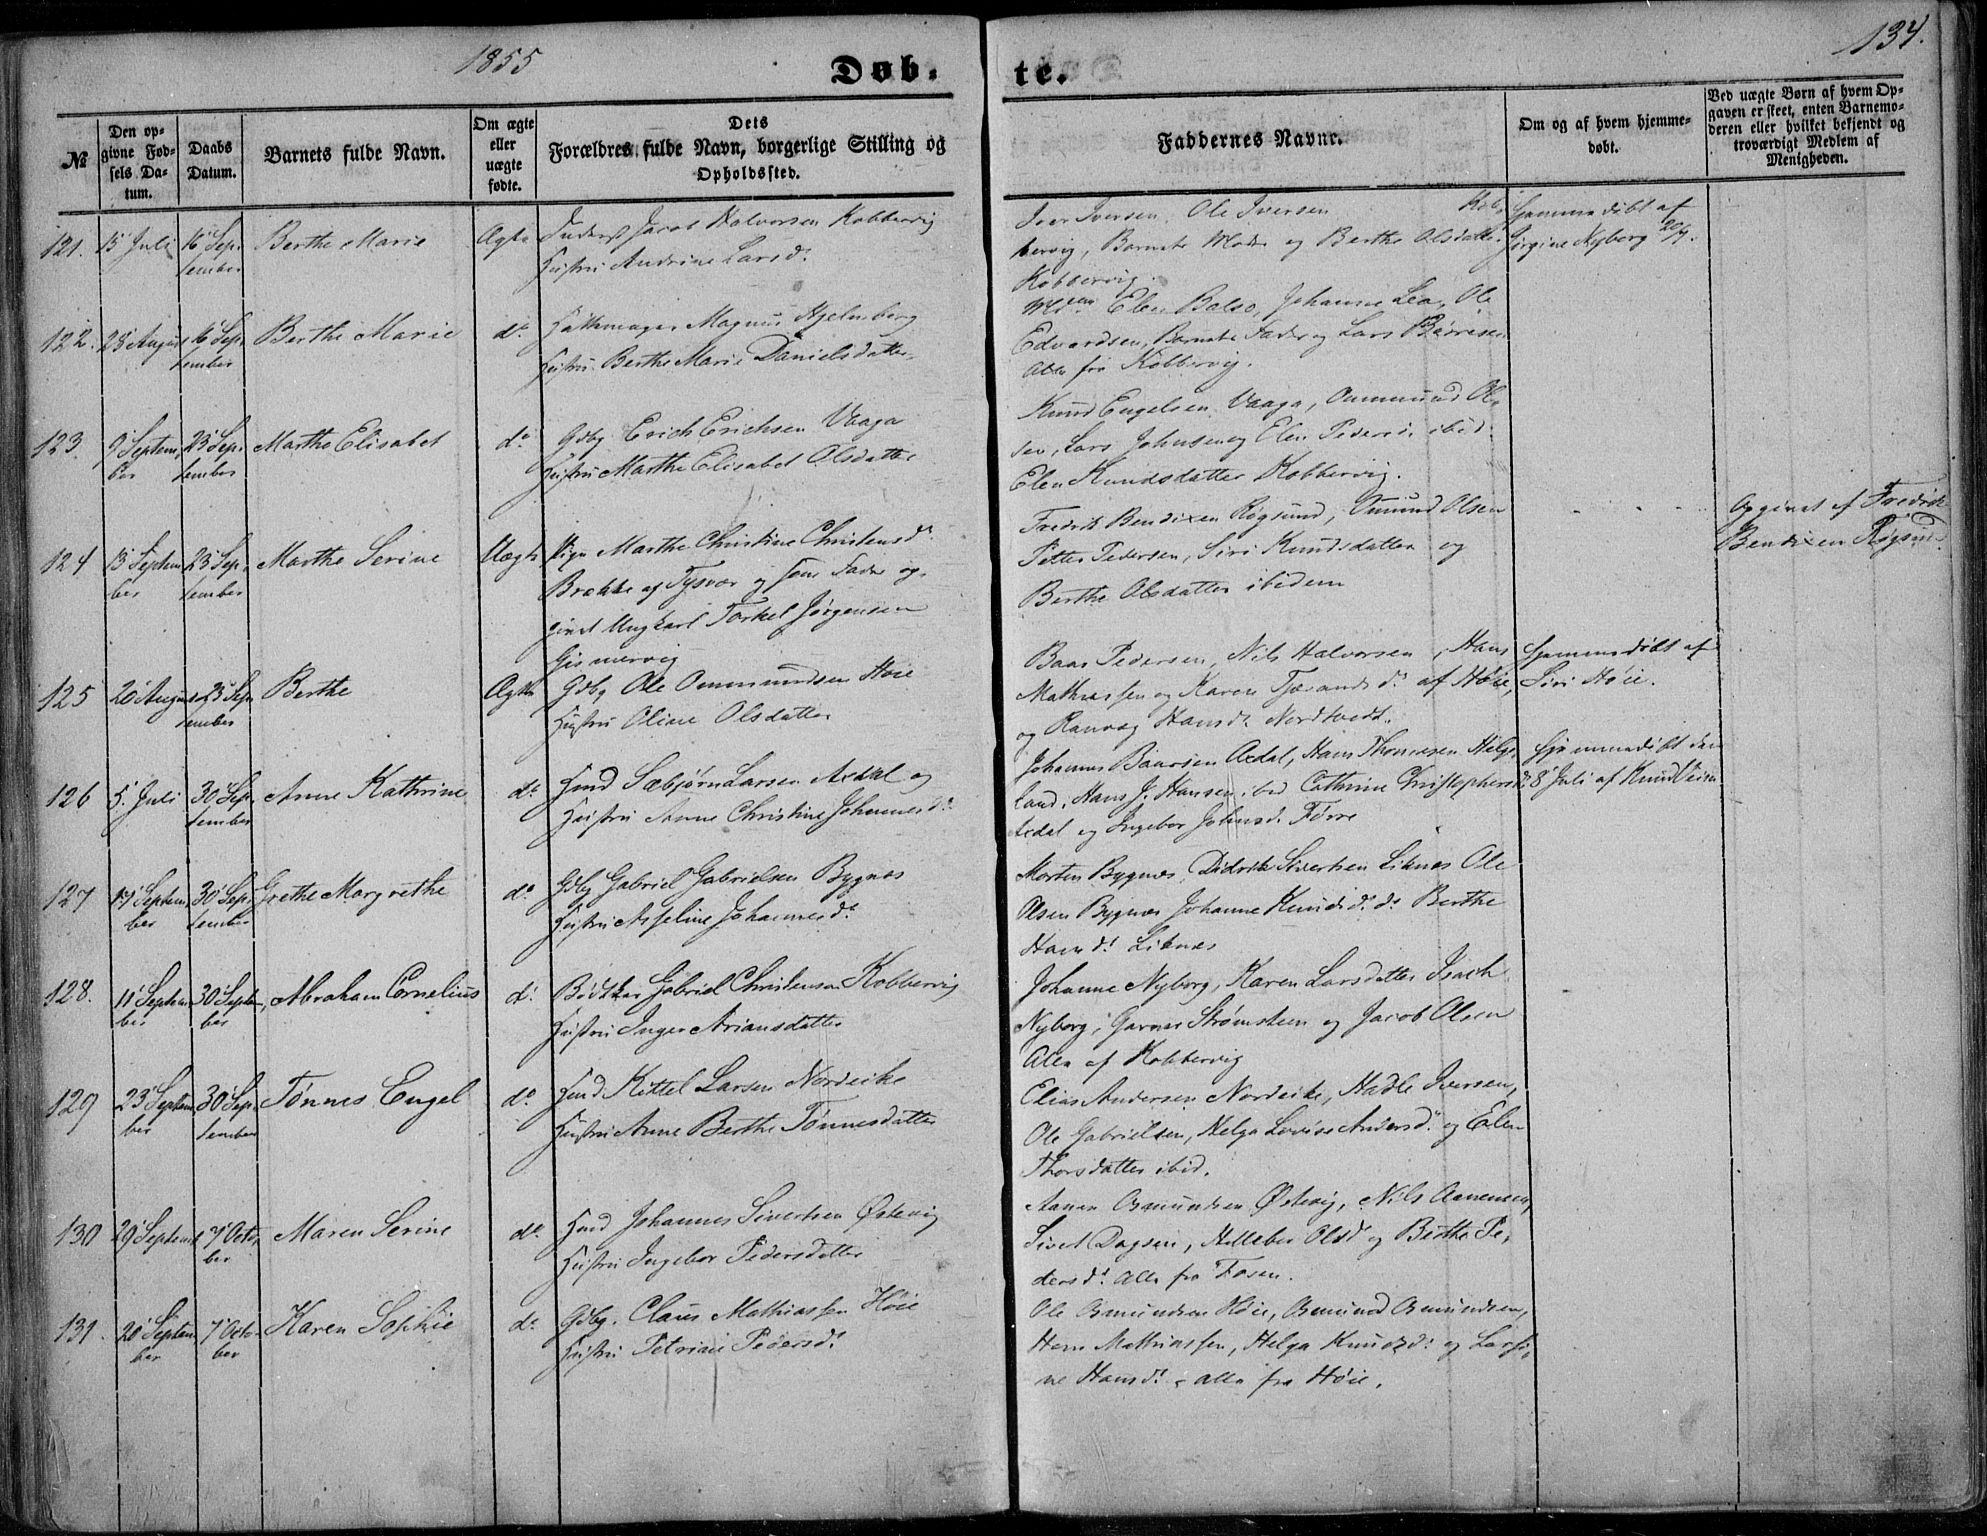 1855
Døb-
te.
134.
№
Den op-
givne Fød-
sels Da-
tum.
Daabs
Datum.
Barnets fulde Navn.
Om ægte
eller
uægte
fødte.
Dets
Forældres fulde Navn, borgerlige Stilling og
Opholdssted.
Faddernes Navne.
Om og af hvem hjemme-
døbt.
Ved uægte Børn af hvem Op-
gaven er skeet, enten Barnemo-
deren eller hvilket bekjendt og
troværdigt Medlem af
Menigheden.
121. 15 Juli 16 Sep- Berthe Marie Ægte Jacob Halvorsen Kobbervig
tember Hustru Andrine Larsd.
Iver Iversen, Ole Iversen Kob-
bervig, Barnets Moder og Berthe Olsdatter
Kobbervig.
Hjemmedøbt af
Jørgine Nyborg
122. 28 August 16 Sep- Berthe Marie do Hattemager Magnus Hjelmberg
tember Hustru Berthe Marie Danielsdatter
Elen Balso, Johanne Lea, Ole
Edvardsen, Barnets Fader og Lars Børresen
Alle fra Kobbervig.
123. 9 Septem- 23 Sep- Marthe Elisabet do Gdbg Erich Erichsen Vaaga
ber tember Hustru Marthe Elisabet Olsdatter
Knud Engelsen Vaaga, Ommund Ol-
sen, Lars Johnsen og Elen Pedersd. ibid.
Elen Knudsdatter Kobbervig.
124 13 Septem- 23 Sep- Marthe Serine Uægte Pige Marthe Christine Christensd.
ber tember Brække af Tysvær og som Fader op-
givet Ungkarl Torkel Jørgensen
Gismervig
Fredrik Bendixen Røgsund, Omund Olsen
Petter Pedersen, Siri Knudsdatter og
Berthe Olsdatter ibidem
Opgivet af Fredrik
Bendixen Røgsund.
125 20 August 23 Sep- Berthe Ægte Gdbg Ole Ommundsen Høie
tember Hustru Oline Olsdatter
Baar Pedersen, Nils Halvorsen, Hans
Mathiassen og Karen Tjærandsd. af Høie,
og Ranvæg Hansd. Nordtvedt.
Hjemmedøbt af
Siri Høie.
126 5. Juli 30 Sep- Anne Kathrine do Huusmd Sæbjørn Larsen Axdal og
tember Hustru Anne Christine Johannesd.
Johannes Baarsen Axdal, Hans Thomesen Helge-
land, Hans J. Hansen ibid Cathrine Christophersd.
Axdal og Ingebor Johnsd. Førre
Hjemmedøbt den
28 Juli af Knud
127 17 Septem- 30 Sep- Grethe Margrethe do Gdbg Gabriel Gabrielsen Bygnæs
ber tember Hustru Asseline Johannesd.
Morten Bygnæs, Didrik Sivertsen Liknæs Ole
Olsen Bygnæs Johanne Knudsd. do Berthe
Hansd. Liknæs
128. 11 Septem- 30 Septem- Abraham Cornelius do Bødtker Gabriel Christensen Kobbervig
ber ber Hustru Inger Ariansdatter
Johanne Nyborg, Karen Larsdatter Isach
Nyborg, Garver Strømsteen og Jacob Olsen
Alle af Kobbervig
129 23 Septem- 30 Sep- Tønnes Engel do Huusmd Kittel Larsen Nordeike
ber tember Hustru Anne Berthe Tønnesdatter
Elias Andersen Nordeike, Hadle Iversen,
Ole Gabrielsen, Helga Lovise Andersd. og Elen
Thorsdatter ibid.
130 29 Septem- 7 Octo- Maren Serine do Huusmd Johannes Sivertsen Østevig
ber Hustru Ingebor Pedersdatter
Aanen Osmundsen Østevig, Nils Aanensen,
Sivert Dagsen, Helleber Olsd og Berthe Pe-
dersd. Alle fra Fosen.
131. 20 Septem- 7 Octo- Karen Sophie do Gdbg. Claus Mathiassen Høie
ber ber Hustru Petrine Pedersd.
Ole Osmundsen Høie, Osmund Osmundsen,
Hans Mathiassen, Helga Knudsd. og Larsi-
ne Hansd. alle fra Høie.